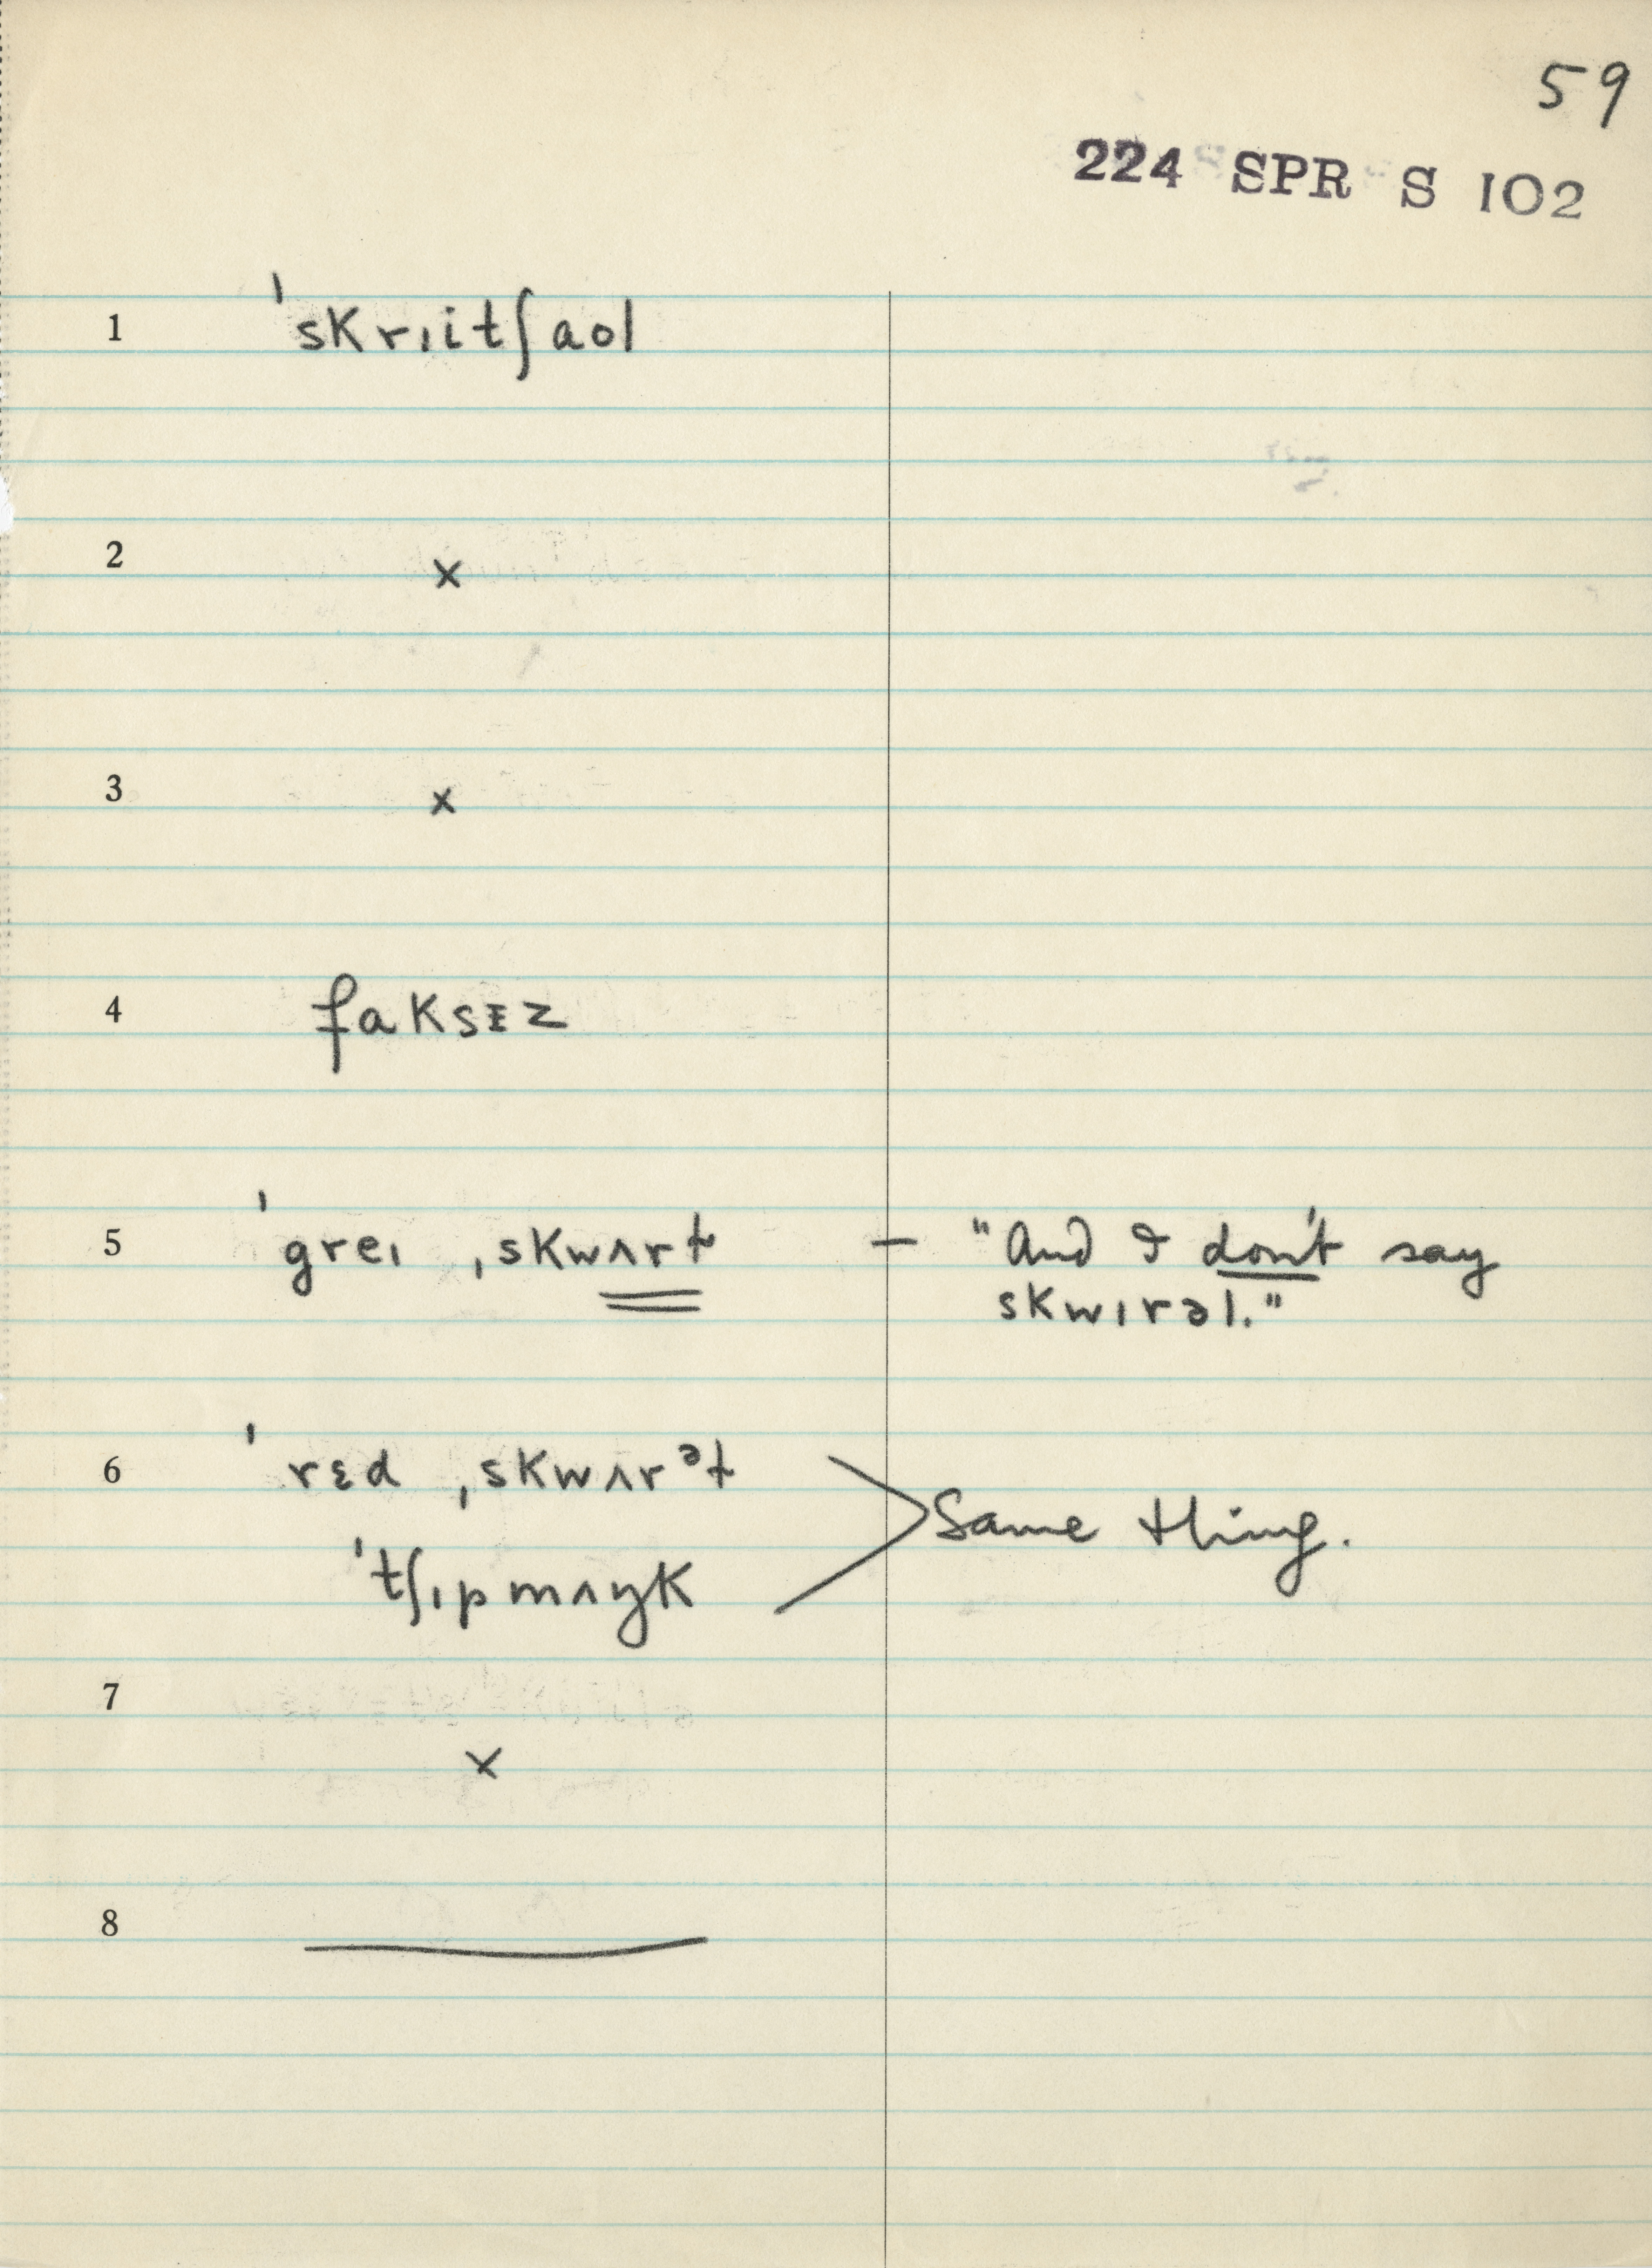 59
224 SPR S 102
1 ˈskrɪitʃaol
2 ×
3 ×
4 faksɪz
5 ˈgreɪ ˌskwʌrɫ — "And I don't say
skwɪrəl."
6 ˈrɛd ˌskwʌrᵊɫ
Same thing.
ˈtʃɪpmʌŋk
7
×
8